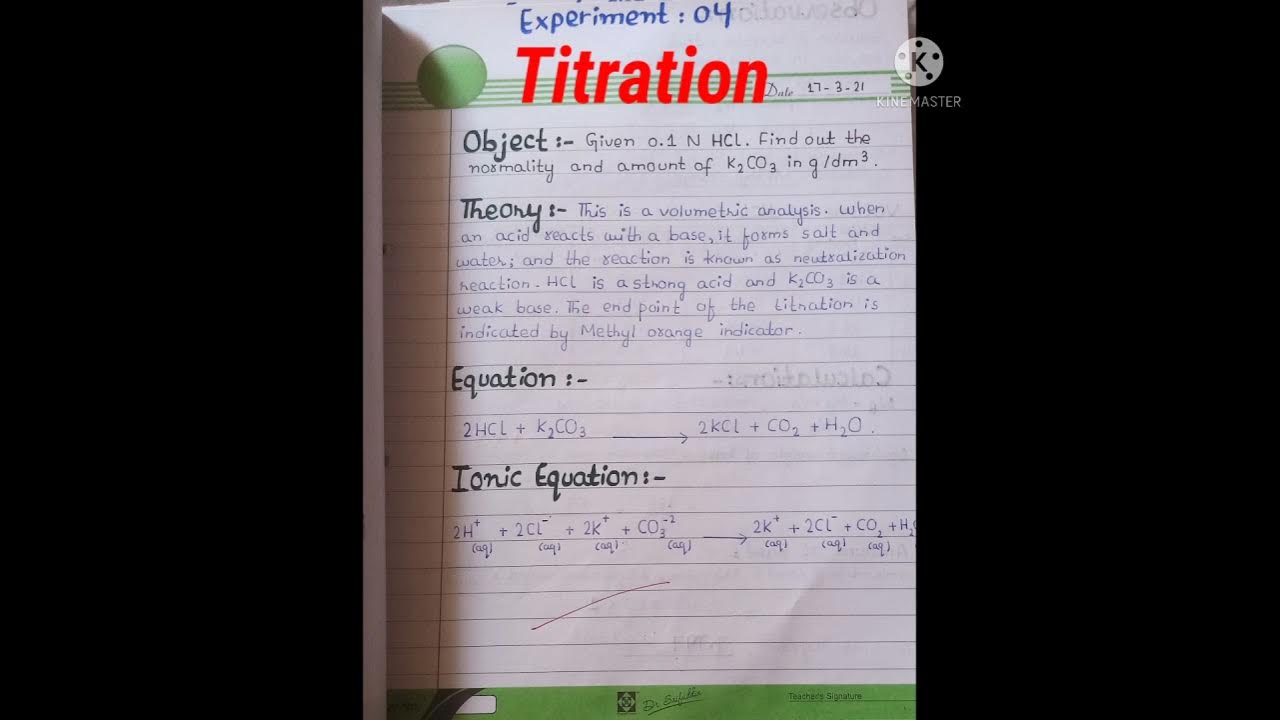 Experiment : 04
Titration
Date 17-3-21
K
KINEMASTER
Object :- Given 0.1 N HCl. Find out the
normality and amount of K₂CO₃ in g/dm³.
Theory :- This is a volumetric analysis. When
an acid reacts with a base, it forms salt and
water; and the reaction is known as neutralization
reaction. HCl is a strong acid and K₂CO₃ is a
weak base. The end point of the titration is
indicated by Methyl orange indicator.
Equation :-
2HCl + K₂CO₃ ⟶ 2KCl + CO₂ + H₂O .
Ionic Equation :-
2H⁺ + 2Cl⁻ + 2K⁺ + CO₃⁻² ⟶ 2K⁺ + 2Cl⁻ + CO₂ + H₂O
(aq) (aq) (aq) (aq) (aq) (aq) (aq)
Teacher's Signature